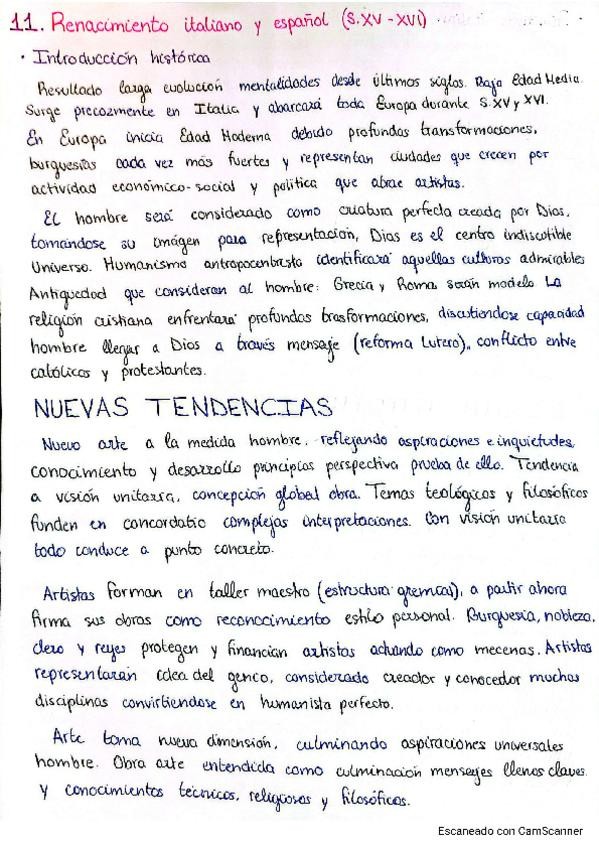 11. Renacimiento italiano y español (S.XV - XVI)
· Introducción histórica
Resultado larga evolución mentalidades desde últimos siglos Baja Edad Media.
Surge precozmente en Italia y abarcará toda Europa durante S.XV y XVI.
En Europa inicia Edad Moderna debido profundas transformaciones,
burguesías cada vez más fuertes y representan ciudades que crecen por
actividad económico-social y política que atrae artistas.
El hombre será considerado como criatura perfecta creada por Dios,
tomándose su imágen para representación, Dios es el centro indiscutible
Universo. Humanismo antropocentrista identificará aquellas culturas admirables
Antigüedad que consideran al hombre: Grecia y Roma serán modelo La
religión cristiana enfrentará profundas trasformaciones, discutiéndose capacidad
hombre llegar a Dios a través mensaje (reforma Lutero), conflicto entre
católicos y protestantes.
NUEVAS TENDENCIAS
Nuevo arte a la medida hombre, reflejando aspiraciones e inquietudes,
conocimiento y desarrollo principios perspectiva prueba de ello. Tendencia
a visión unitaria, concepción global obra. Temas teológicos y filosóficos
funden en concordatio complejas interpretaciones. Con visión unitaria
todo conduce a punto concreto.
Artistas forman en taller maestro (estructura gremial), a partir ahora
firma sus obras como reconocimiento estilo personal. Burguesía, nobleza,
clero y reyes protegen y financian artistas actuando como mecenas. Artistas
representarán idea del genio, considerado creador y conocedor muchas
disciplinas convirtiéndose en humanista perfecto.
Arte toma nueva dimensión, culminando aspiraciones universales
hombre. Obra arte entendida como culminación mensajes llenos claves
y conocimientos técnicos, religiosos y filosóficos.
Escaneado con CamScanner